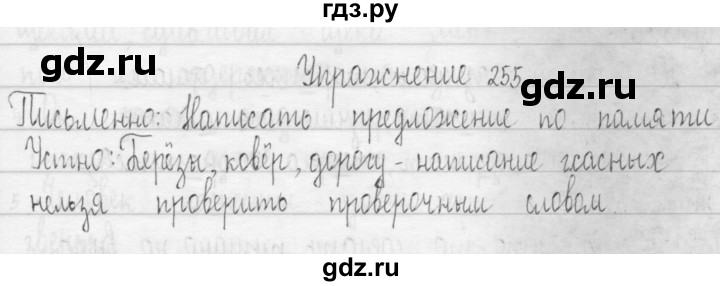 гдз.ру
gdz.ru
gdz.ru
Упражнение 255
Письменно: Написать предложение по памяти
Устно: Берёзы, ковёр, дорогу - написание гласных
нельзя проверить проверочным словом.
gdz.ru
gdz.ru